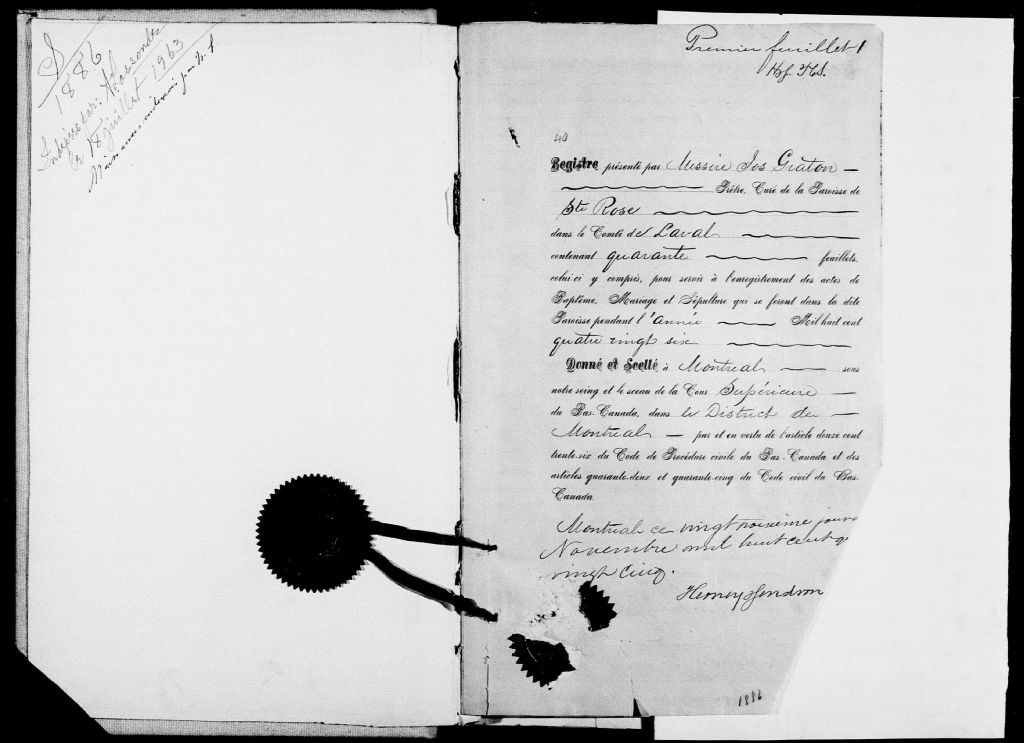 1886
Indexé par:
le 18 juillet 1963
Premier feuillet 1
40
Registre présenté par Messire Jos Graton
Prêtre, Curé de la Paroisse de
Ste Rose
dans le Comté de Laval
contenant quarante feuillets,
celui-ci y compris, pour servir à l'enregistrement des actes de
Baptême, Mariage et Sépulture qui se feront dans la dite
Paroisse pendant l'année Mil huit cent
quatre vingt six
Donné et Scellé à Montreal sous
notre seing et le sceau de la Cour Supérieure
du Bas-Canada, dans le District de
Montreal par et en vertu de l'article douze cent
trente-six du Code de Procédure civile du Bas-Canada et des
articles quarante-deux et quarante-cinq du Code civil du Bas-
Canada
Montreal ce vingt troisième jour
Novembre mil huit cent q
vingt cinq.
1886